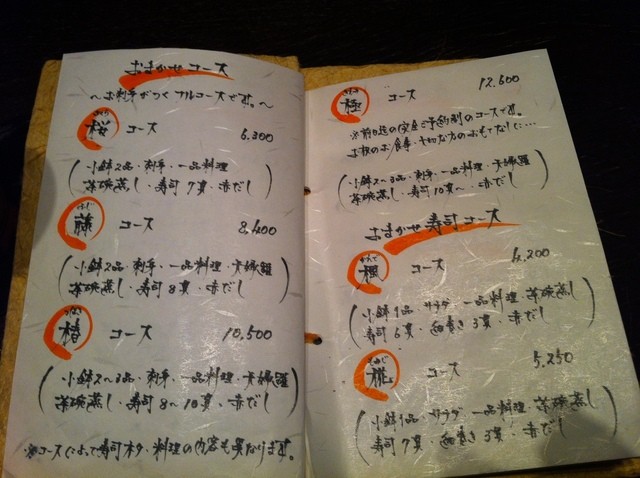 おまかせコース
～お刺身がつくフルコースです。～
さくら
桜 コース 6.300
(小鉢2品・刺身・一品料理
茶碗蒸し・寿司7貫・赤だし)
ふじ
藤 コース 8,400
(小鉢2品・刺身・一品料理・天婦羅
茶碗蒸し・寿司8貫・赤だし)
つばき
椿 コース 10,500
(小鉢2～3品・刺身・一品料理・天婦羅
茶碗蒸し・寿司8～10貫・赤だし)
※コースによって寿司ネタ・料理の内容も異なります。
極 コース 12.600
※前日迄の完全ご予約制のコースです。
お祝のお食事・大切な方のおもてなしに…
(小鉢2～3品・刺身・一品料理・天婦羅
茶碗蒸し・寿司10貫～・赤だし)
おまかせ寿司コース
かえで
楓 コース 4.200
(小鉢1品 サラダ・一品料理 茶碗蒸し
寿司6貫・細巻き3貫・赤だし)
コース 5.250
(小鉢1品・サラダ・一品料理・茶碗蒸し
寿司7貫・細巻き3貫・赤だし)